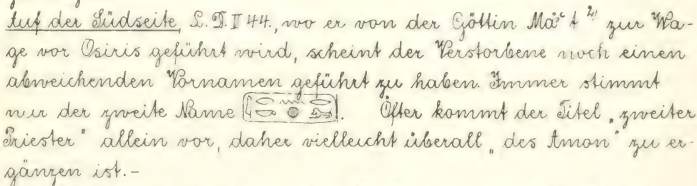 Auf der Südseite, L. D. II 44., wo er von der Göttin Mȝʿ t ²⁾ zur Wa-
ge vor Osiris geführt wird, scheint der Verstorbene noch einen
abweichenden Vornamen geführt zu haben. Immer stimmt
nur der zweite Name. Öfter kommt der Titel „zweiter
Priester" allein vor, daher vielleicht überall „des Amon" zu er-
gänzen ist. -